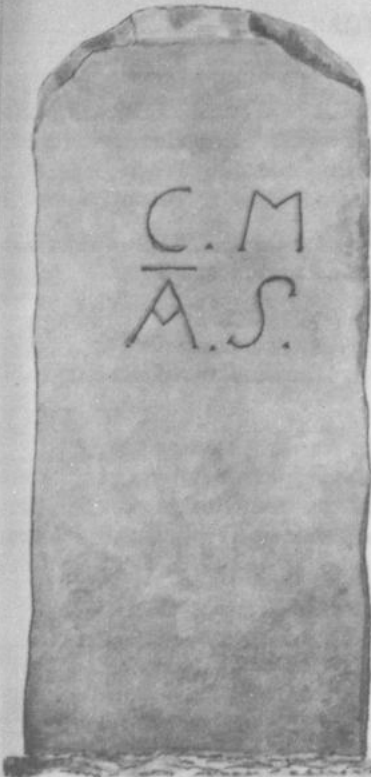 C. M
A. S.